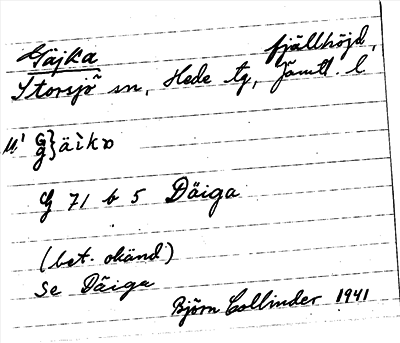 Gäjka fjällhöjd,
Storsjö sn, Hede tg, Jämtl. l.
G
g} äìkɒ
G 71 b 5 Däiga
(bet. okänd)
Se Däiga
Björn Collinder 1941